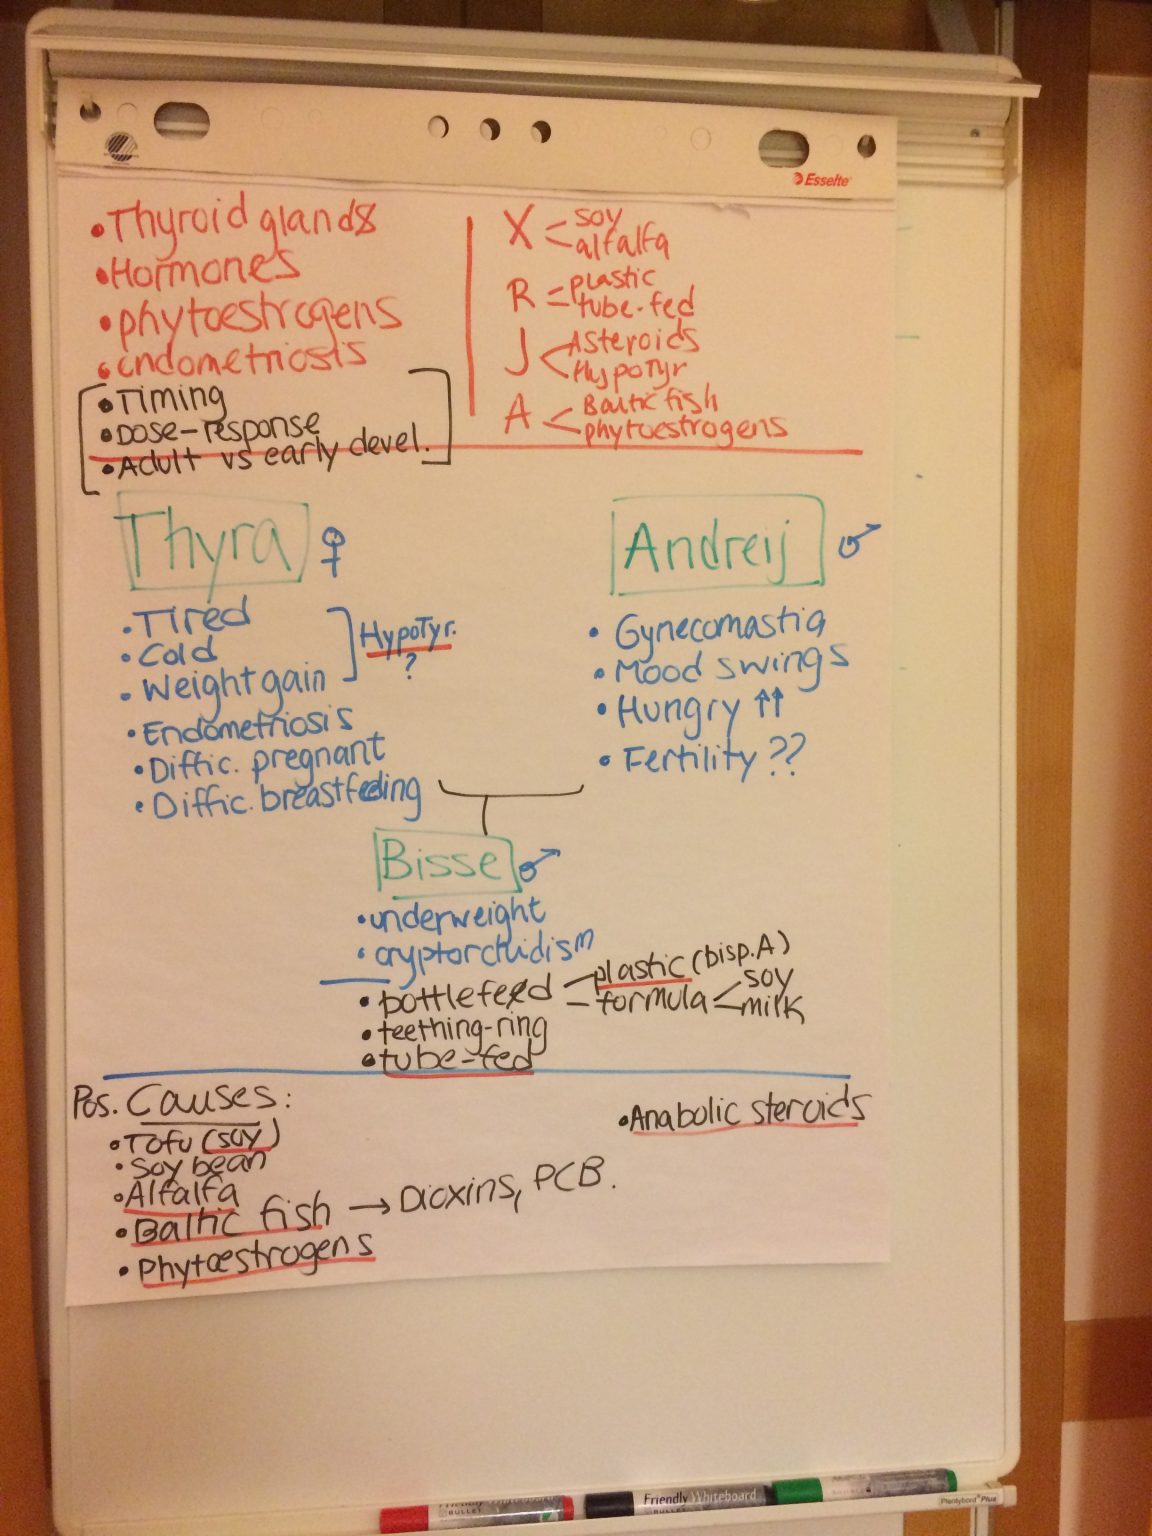 Esselte
• Thyroid glands
• Hormones
• phytoestrogens
• endometriosis
• Timing
• Dose-response
• Adult vs early devel.
X
soy
alfalfa
R
plastic
tube-fed
J
Asteroids
Hypotyr
A
Baltic fish
phytoestrogens
Thyra ♀
• Tired
• Cold
• Weight gain
Hypotyr.
?
• Endometriosis
• Diffic. pregnant
• Diffic. breastfeeding
Andreij ♂
• Gynecomastia
• Mood swings
• Hungry ↑↑
• Fertility ??
Bisse ♂
• underweight
• cryptorchidism
• bottlefeed
plastic (bisp.A)
formula
soy
milk
• teething-ring
• tube-fed
Pos. Causes:
• Tofu (soy)
• Soy bean
• Alfalfa
• Baltic fish → Dioxins, PCB.
• Phytoestrogens
• Anabolic steroids
Friendly Whiteboard
BULLET
Friendly Whiteboard
Plentybord Plus